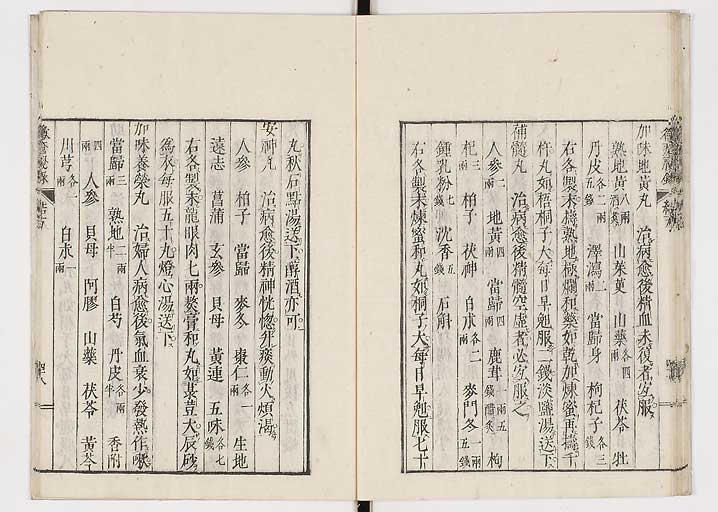 加味地黃丸　治病愈後精血未復者宜服
熟地黃八兩酒蒸　山茱萸　山藥各四兩　茯苓　牡
丹皮各二兩五錢　澤瀉二兩　當歸身　枸杞子各三錢
右各製末擣熟地極爛和藥如乾加煉蜜再擣千
杵丸如梧桐子大每日早剋服二錢淡鹽湯送下
補髓丸　治病愈後精髓空虛者必宜服之
人參一兩　地黃四兩　當歸四兩　鹿茸一兩五錢酥炙　枸
杞三兩　柏子　茯神　白朮各二兩　麥門冬一兩五錢
鍾乳粉七錢　沈香五錢　石斛
右各製末煉蜜和丸如桐子大每日早剋服七十
丸秋石點湯送下醇酒亦可
安神丸　治病愈後精神恍惚升痰動火煩渴
人參　柏子　當歸　麥冬　棗仁各一兩　生地
遠志　菖蒲　玄參　貝母　黃連　五味各七錢
右各製末龍眼肉七兩熬膏和丸如菉豆大辰砂
爲衣每服五十丸燈心湯送下
加味養榮丸　治婦人病愈後氣血衰少發熱作嗽
當歸三兩　熟地二兩半　白芍　丹皮各兩半　香附
四兩　人參　貝母　阿膠　山藥　茯苓　黃芩
川芎各一兩　白朮一兩